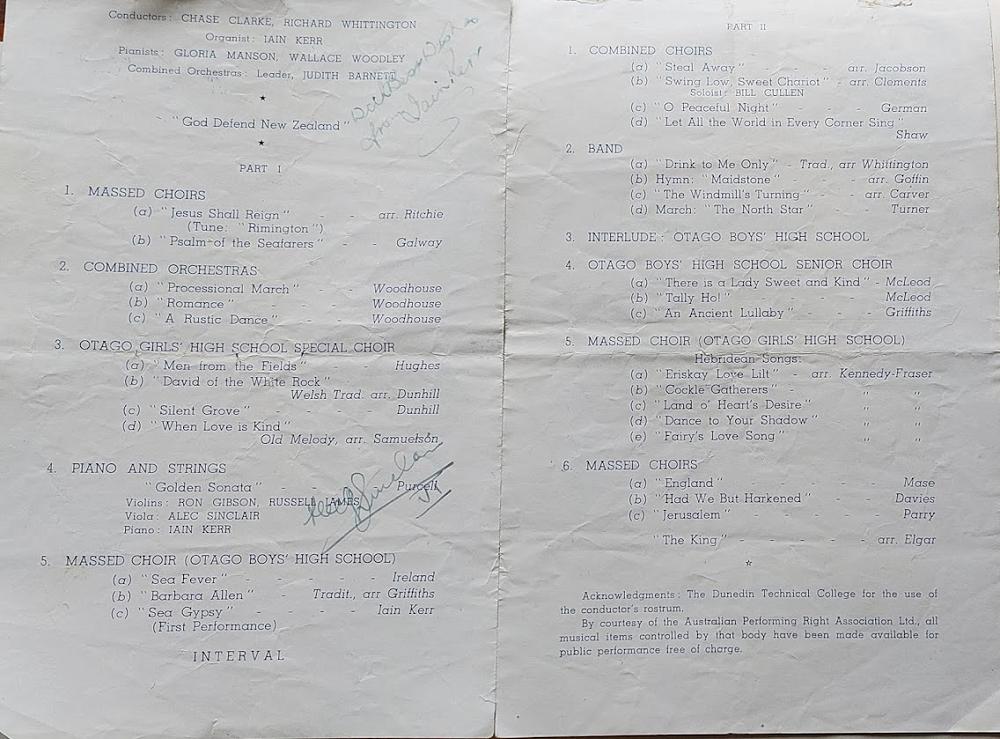 Conductors: CHASE CLARKE, RICHARD WHITTINGTON
Organist: IAIN KERR
Pianists: GLORIA MANSON, WALLACE WOODLEY
Combined Orchestras: Leader, JUDITH BARNETT
With Best Wishes
from Iain Kerr
★
"God Defend New Zealand"
★
PART I
1. MASSED CHOIRS
(a) "Jesus Shall Reign" - - arr. Ritchie
(Tune: "Rimington")
(b) "Psalm of the Seafarers" - - Galway
2. COMBINED ORCHESTRAS
(a) "Processional March" - - Woodhouse
(b) "Romance" - - - - Woodhouse
(c) "A Rustic Dance" - - - Woodhouse
3. OTAGO GIRLS' HIGH SCHOOL SPECIAL CHOIR
(a) "Men from the Fields" - - Hughes
(b) "David of the White Rock"
Welsh Trad. arr. Dunhill
(c) "Silent Grove" - - - - Dunhill
(d) "When Love is Kind"
Old Melody, arr. Samuelson
4. PIANO AND STRINGS
"Golden Sonata" - - - - Purcell
Violins: RON GIBSON, RUSSELL JAMES
Viola: ALEC SINCLAIR
Piano: IAIN KERR
Alec J Sinclair
5. MASSED CHOIR (OTAGO BOYS' HIGH SCHOOL)
(a) "Sea Fever" - - - - - Ireland
(b) "Barbara Allen" - Tradit., arr Griffiths
(c) "Sea Gypsy" - - - - Iain Kerr
(First Performance)
INTERVAL
PART II
1. COMBINED CHOIRS
(a) "Steal Away" - - - arr. Jacobson
(b) "Swing Low, Sweet Chariot" - arr. Clements
Soloist: BILL CULLEN
(c) "O Peaceful Night" - - - German
(d) "Let All the World in Every Corner Sing"
Shaw
2. BAND
(a) "Drink to Me Only" - Trad., arr Whittington
(b) Hymn: "Maidstone" - - - arr. Goffin
(c) "The Windmill's Turning" - - arr. Carver
(d) March: "The North Star" - - Turner
3. INTERLUDE: OTAGO BOYS' HIGH SCHOOL
4. OTAGO BOYS' HIGH SCHOOL SENIOR CHOIR
(a) "There is a Lady Sweet and Kind" - McLeod
(b) "Tally Ho!" - - - - - McLeod
(c) "An Ancient Lullaby" - - - Griffiths
5. MASSED CHOIR (OTAGO GIRLS' HIGH SCHOOL)
Hebridean Songs:
(a) "Eriskay Love Lilt" - arr. Kennedy-Fraser
(b) "Cockle Gatherers" - „ „
(c) "Land o' Heart's Desire" „ „
(d) "Dance to Your Shadow" „ „
(e) "Fairy's Love Song" „ „
6. MASSED CHOIRS
(a) "England" - - - - - Mase
(b) "Had We But Harkened" - - Davies
(c) "Jerusalem" - - - - - Parry
"The King" - - - - - arr. Elgar
☆
Acknowledgments: The Dunedin Technical College for the use of
the conductor's rostrum.
By courtesy of the Australian Performing Right Association Ltd., all
musical items controlled by that body have been made available for
public performance free of charge.